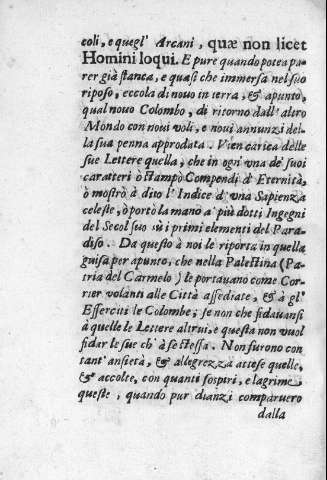 coli, e quegl' Arcani, quæ non licet
Homini loqui. E pure quando potea pa-
rer già stanca, e quasi che immersa nel suo
riposo, eccola di nuovo in terra, & apunto,
qual nuovo Colombo, di ritorno dall' altro
Mondo con novi voli, e novi annunzi del-
la sua penna approdata. Vien carica delle
sue Lettere quella, che in ogni una de' suoi
caratteri ò stampò Compendi d' Eternità,
ò mostrò à dito l' Indice d' una Sapienza
celeste, ò portò la mano a' più dotti Ingegni
del Secol suo sù i primi elementi del Para-
diso. Da questo à noi le riporta in quella
guisa per apunto, che nella Palestina (Pa-
tria del Carmelo) le portavano come Cor-
rier volanti alle Città assediate, & à gl'
Esserciti le Colombe; se non che fidavansi
à quelle le Lettere altrui, e questa non vuol
fidar le sue ch' à se stessa. Non furono con
tant' ansietà, & allegrezza attese quelle,
& accolte, con quanti sospiri, e lagrime
queste, quando pur dianzi comparvero
dalla